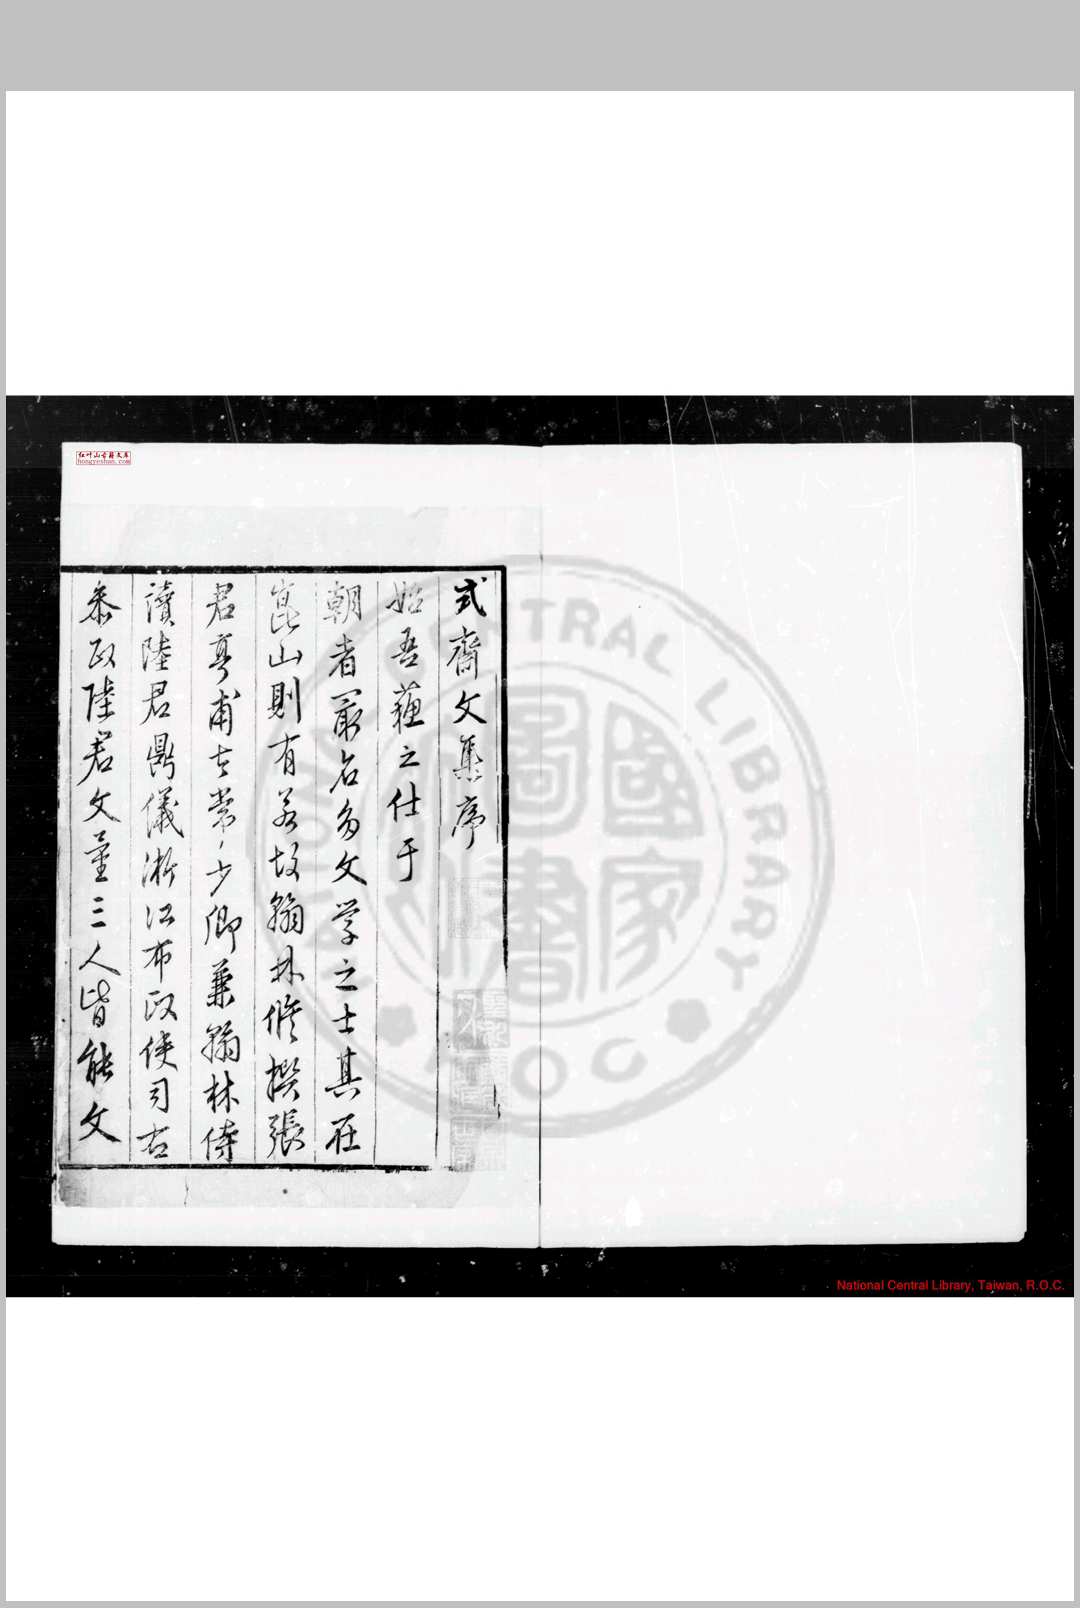 红叶山古籍文库
hongyeshan.com
式齋文集序
始吾蘇之仕于
朝者最名多文学之士其在
崑山則有若故翰林修撰張
君亨甫太常少卿兼翰林侍
讀陸君鼎儀浙江布政使司右
叅政陸君文量三人皆能文
CENTRAL LIBRARY
ROC
國家圖書
National Central Library, Taiwan, R.O.C.